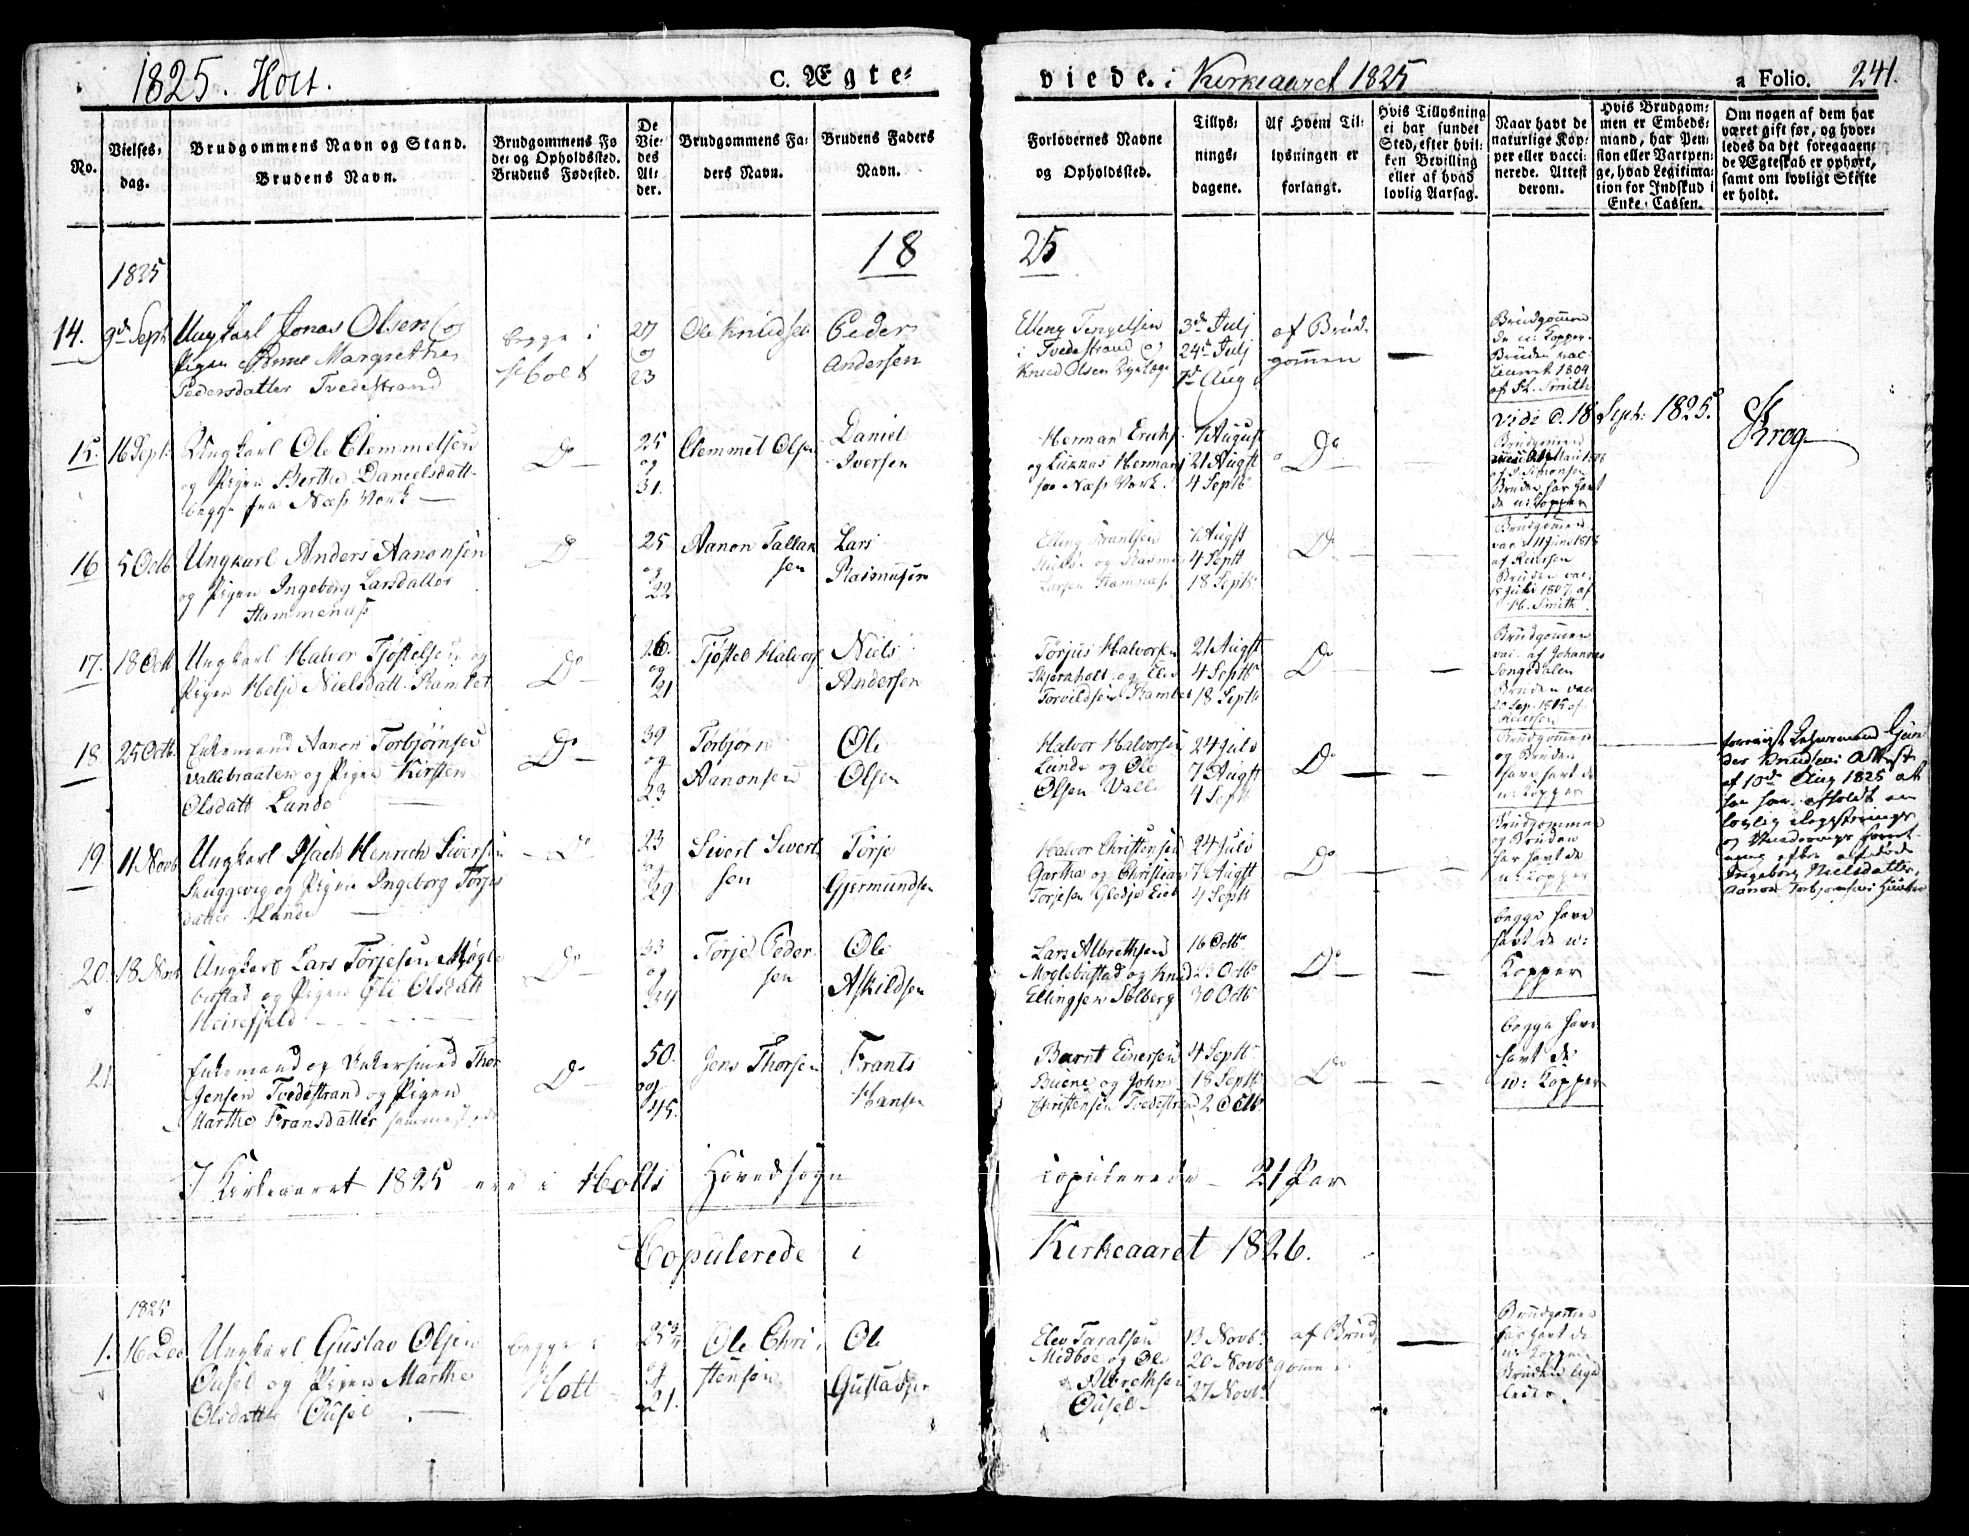 1825. Holt.
C. Ægte=
viede. i Kirkeaaret 1825
a Folio. 241.
No.
Vielses=
dag.
Brudgommens Navn og Stand.
Brudens Navn.
Brudgommens Fø
de= og Opholdssted.
Brudens Fødested.
De
Vie=
des
Al=
der.
Brudgommens Fa=
ders Navn.
Brudens Faders
Navn.
Forlovernes Navne
og Opholdssted.
Tillys=
nings=
dagene.
Af Hvem Til=
lysningen er
forlangt.
Hvis Tillysning
ei har fundet
Sted, efter hvil=
ken Bevilling
eller af hvad
lovlig Aarsag.
Naar havt de
naturlige Kop=
per eller vacci=
nerede. Attest
derom.
Hvis Brudgom=
men er Embeds=
mand, har Pen=
sion eller Vartpen=
ge, hvad Legitima=
tion for Indskud i
Enke=Cassen.
Om nogen af dem har
været gift før, og hvor=
ledes da det foregaaen=
de Ægteskab er ophørt,
samt om lovligt Skifte
er holdt.
18
25
1825
14.
9de Sept
Ungkarl Jonas Olsen og
Pigen Margrethe
Pedersdatter Tvedestrand
begge i
Holt
27
og
23
Ole Knudsen
Peder
Andersen
Elleng Tengelsen
i Tvedestrand og
Knud Olsen
3de Julj
24de Julj
7de Aug
af Brud-
gommen
Brudgommen
de n: Kopper
Bruden vac
1804
af H. Smith
Vide d. 18 Sept: 1825.
Krog
15.
16 Sept:
Ungkarl Ole Clemmetsen
og Pigen Berthe Danielsdatt
begge fra Næss Værk
Do
25
og
31.
Clemmet Olsen
Daniel
Iversen
Herman Erichs
og Herman
Næs Værk.
7 August
21 Augst
4 Septb
Do
Brudgommen
af S. Simonsen
Bruden har havt
de n: Kopper
16
5 Octb
Ungkarl Anders Aanonsen
og Pigen Ingeborg Larsdatter
Hammenæss
Do
25
og
22
Aanon Tallak
sen
Lars
Rasmusen
Elling
og Rasmus
Larsen Hammnæss
7 Augst
4 Septb
18 Septb
Do
Brudgommen
vac: 11 Juni 1818
af Reiersen
Bruden vac.
15 Juli 1807 af
H. Smith
17.
18 Octb
Ungkarl Halvor Tjøstelsen og
Pigen Helje Nielsdatt. Ramlet
Do
26.
og
21
Tjøstel Halvors
Niels
Andersen
Tørjus Halvorsen
Skjeraholt og Elev
Torvildsen Ramlet
21 Augst
4 Septb
18 Septb
Do
Brudgommen
vac. af Johannes
Songedalen
Bruden vac
20 Sep. 1815 af
Reiersen
18
25 Octb.
Enkemand Aanon Torbjørnsen
Vallebraaten og Pigen Kirsten
Olsdatt Lunde
Do
39
og
23
Torbjørn
Aanonsen
Ole
Olsen
Halvor Halvorsen
Lunde og Ole
Olsen Valle
24 Julv
7 Augst
4 Septb
Do
Brudgommen
og Bruden
have havt de
n: Kopper
foreviist Lehnsmand Gun
der Knudsens Attest
af 10de Aug 1825 at
han har afholdt en
lovlig Registrerings
og Vurderings Forret-
ning efter afdøde
Ingeborg Nielsdatter,
Aanon Torbjørnsens Hustru
19
11 Novb
Ungkarl Isach Henrich Siversen
Skuggevig og Pigen Ingeborg Tørjes
datter Lunde
Do
23
og
29
Sivert Sivert
sen
Tørje
Gjermundsen
Halvor Christensen
Gartha og Christian
Torjesen Gledje Eie
24 Julv
7 Augst
4 Septb
Do
Brudgommen
og Bruden
har havt de
n: Kopper
20.
18 Novb
Ungkarl Lars Torjesen Møgle
bustad og Pigen Oli Olsdatt
Heirefjeld
Do
33
og
34
Torje Peder
sen
Ole
Askildsen
Lars Albrethsen
Moglebustad og Knud
Ellingsen Solberg
16 Octb
23 Octb
30 Octb
Do
begge have
havt de n:
Kopper
21
Enkemand og Uhrmaker Thor
Jensen Tvedestrand og Pigen
Marthe Fransdatter sammested
Do
50.
og
45.
Jens Thorsen
Frants
Hansen
Barnt Einersen
Buene og John
Christensen Tvedestrand
4 Septb
18 Septb
2 Octb.
Do
begge have
havt de
n: Kopper
I Kirkeaaret 1825 ere i Holts Hovedsogn copulerede - 21 Par
Copulerede i Kirkeaaret 1826.
1825
1.
16 Dec
Ungkarl Gustav Olsen
Ousel og Pigen Marthe
Olsdatter Ousel
begge i
Holt
25
og
21.
Ole Chri
stensen
Ole
Gustadsen
Elev Taralsen
Midboe og Ole
Albrethsen
Ousel
13 Novbr
20 Novbr
27 Novbr
af Brud
gommen
Brudgommen
har havt de
n: Kopper
Bruden lige
ledes.